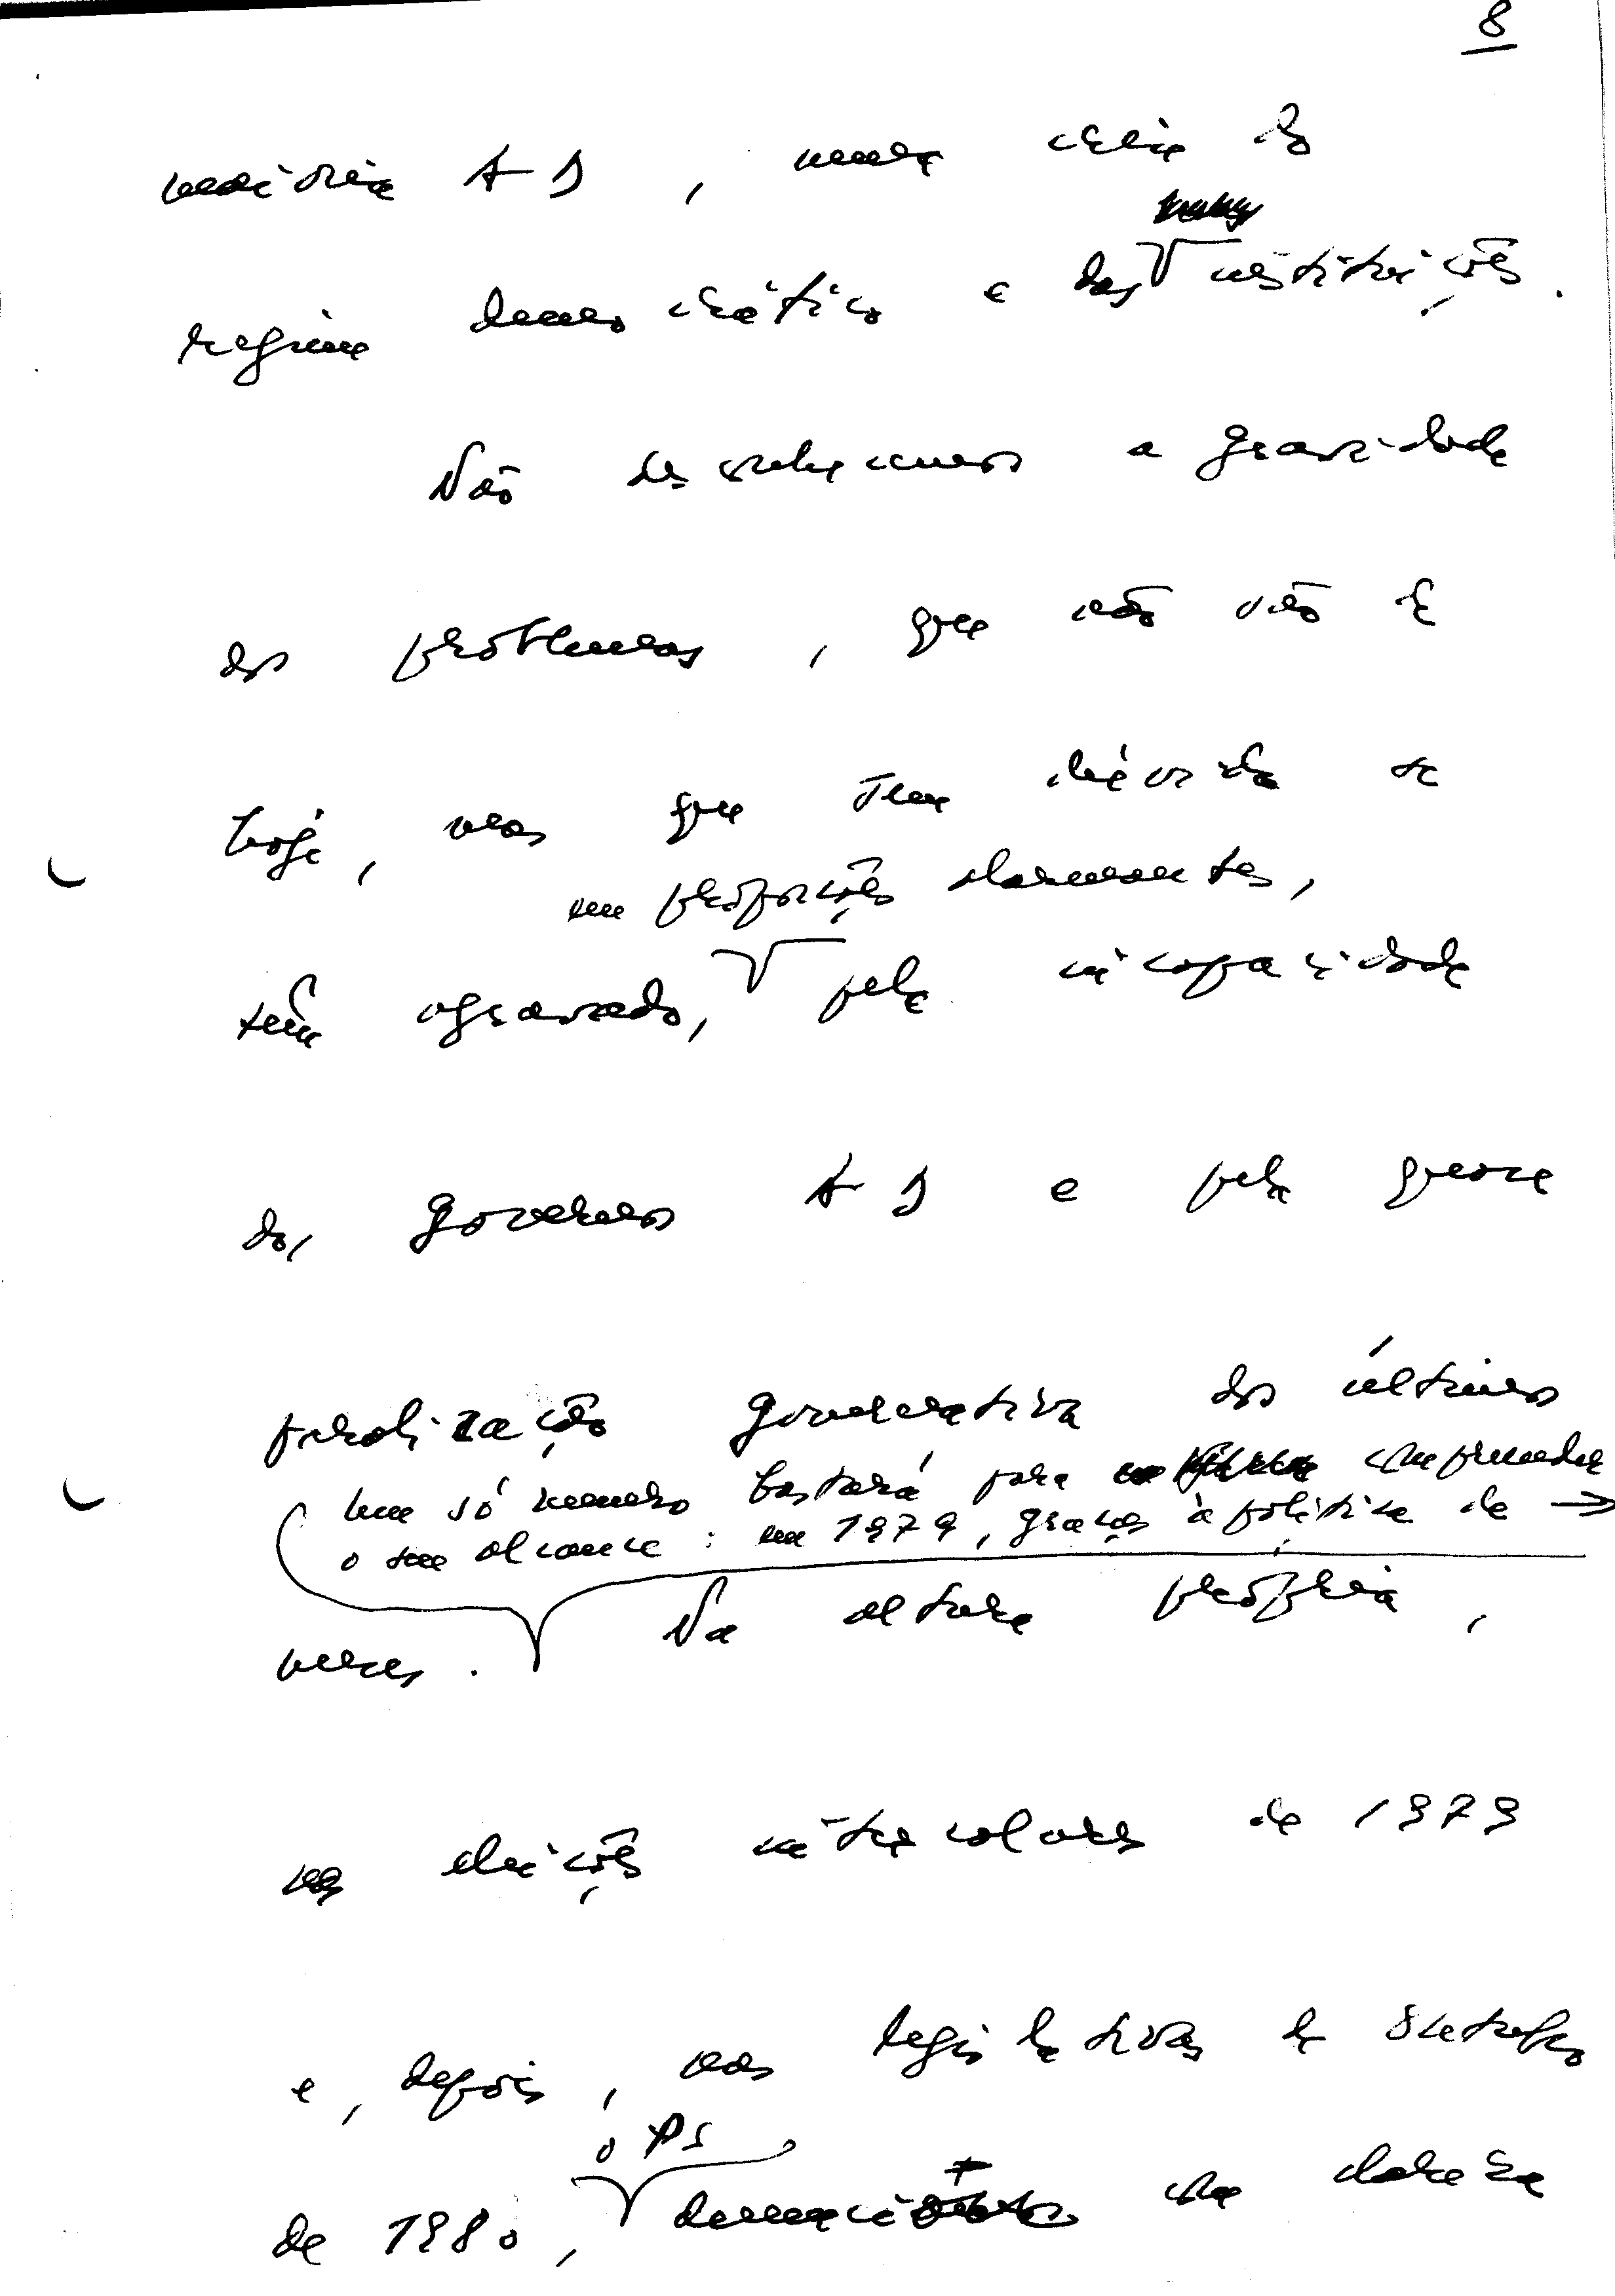 8
maioria AD, numa crise do
regime democrático e das instituições.
Não desconhecemos a gravidade
dos problemas, que não são de
hoje, mas que sem dúvida se
em proporções alarmantes,
têm agravado, pela incapacidade
dos governos AD e pela quase
paralização governativa dos últimos
Um só número bastará para compreender
o seu alcance: em 1979, graças à política de →
meses. Na altura própria,
nas eleições intercalares de 1979
e, depois, nas legislativas de Outubro
o PS
de 1980, denunciou com clareza